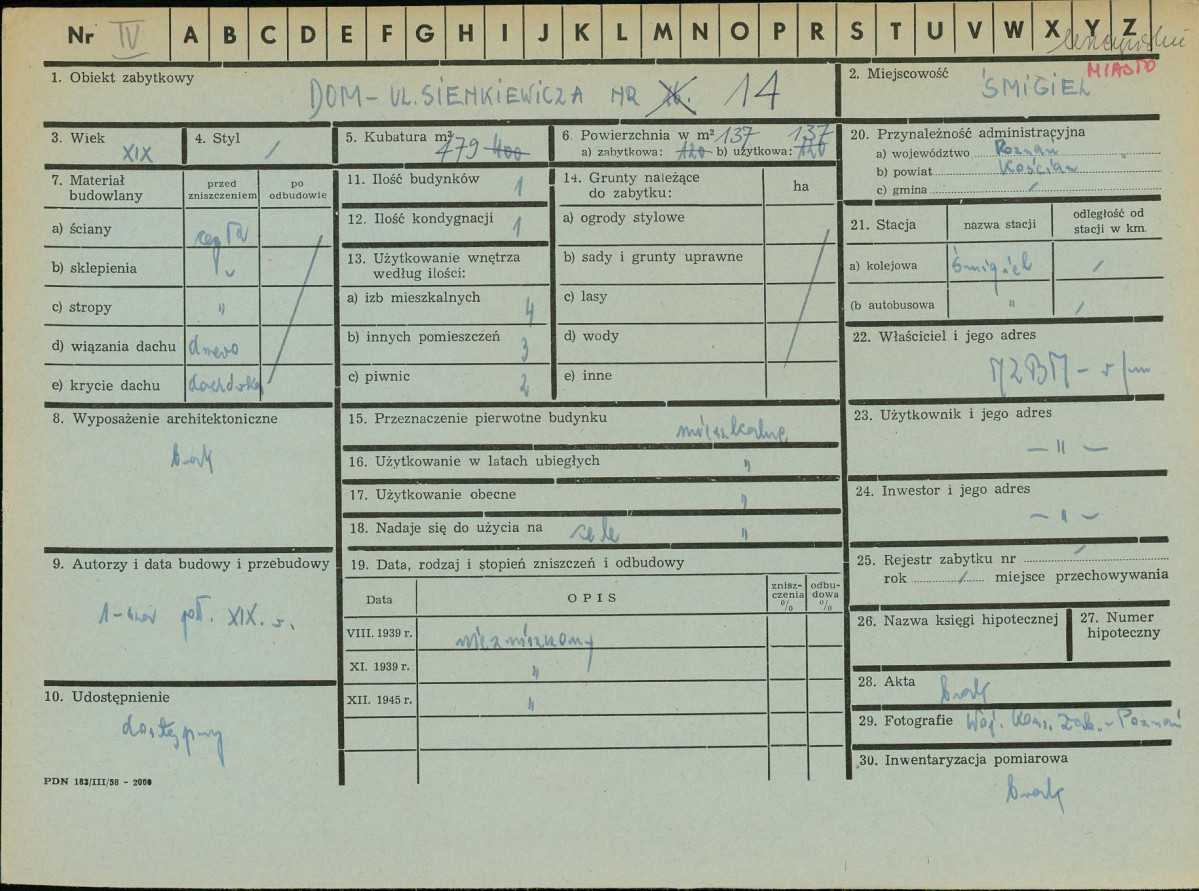 Nr IV A B C D E F G H I J K L M N O P R S T U V W X Y Z
MIASTO
1. Obiekt zabytkowy
DOM - UL. SIENKIEWICZA NR 14
2. Miejscowość
ŚMIGIEL
3. Wiek
XIX
4. Styl /
5. Kubatura m³
479 400
6. Powierzchnia w m² 137 137
a) zabytkowa: 120 b) użytkowa: 120
20. Przynależność administracyjna
a) województwo Poznań
b) powiat Kościan
c) gmina /
7. Materiał budowlany
przed zniszczeniem
po odbudowie
a) ściany cegła
b) sklepienia "
c) stropy "
d) wiązania dachu drewo
e) krycie dachu dachówka
11. Ilość budynków 1
12. Ilość kondygnacji 1
13. Użytkowanie wnętrza
według ilości:
a) izb mieszkalnych 4
b) innych pomieszczeń 3
c) piwnic 2
14. Grunty należące
do zabytku:
ha
a) ogrody stylowe
b) sady i grunty uprawne
c) lasy
d) wody
e) inne
21. Stacja
nazwa stacji
odległość od
stacji w km.
a) kolejowa Śmigiel /
(b autobusowa " /
22. Właściciel i jego adres
MZBM - w/m
23. Użytkownik i jego adres
— " —
24. Inwestor i jego adres
— " —
8. Wyposażenie architektoniczne
brak
15. Przeznaczenie pierwotne budynku
mieszkalne
16. Użytkowanie w latach ubiegłych "
17. Użytkowanie obecne "
18. Nadaje się do użycia na cele "
9. Autorzy i data budowy i przebudowy
1-wsza poł. XIX. w.
10. Udostępnienie
dostępny
19. Data, rodzaj i stopień zniszczeń i odbudowy
Data
OPIS
znisz-
czenia
%
odbu-
dowa
%
VIII. 1939 r. niezniszczony
XI. 1939 r. "
XII. 1945 r. "
25. Rejestr zabytku nr /
rok / miejsce przechowywania
26. Nazwa księgi hipotecznej
27. Numer
hipoteczny
28. Akta brak
29. Fotografie Woj. Kons. Zab. - Poznań
30. Inwentaryzacja pomiarowa
brak
PDN 183/III/58 - 2000